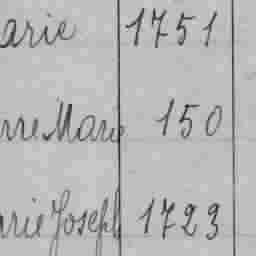 arie 1751
rre Marie 150
arie Joseph 1723